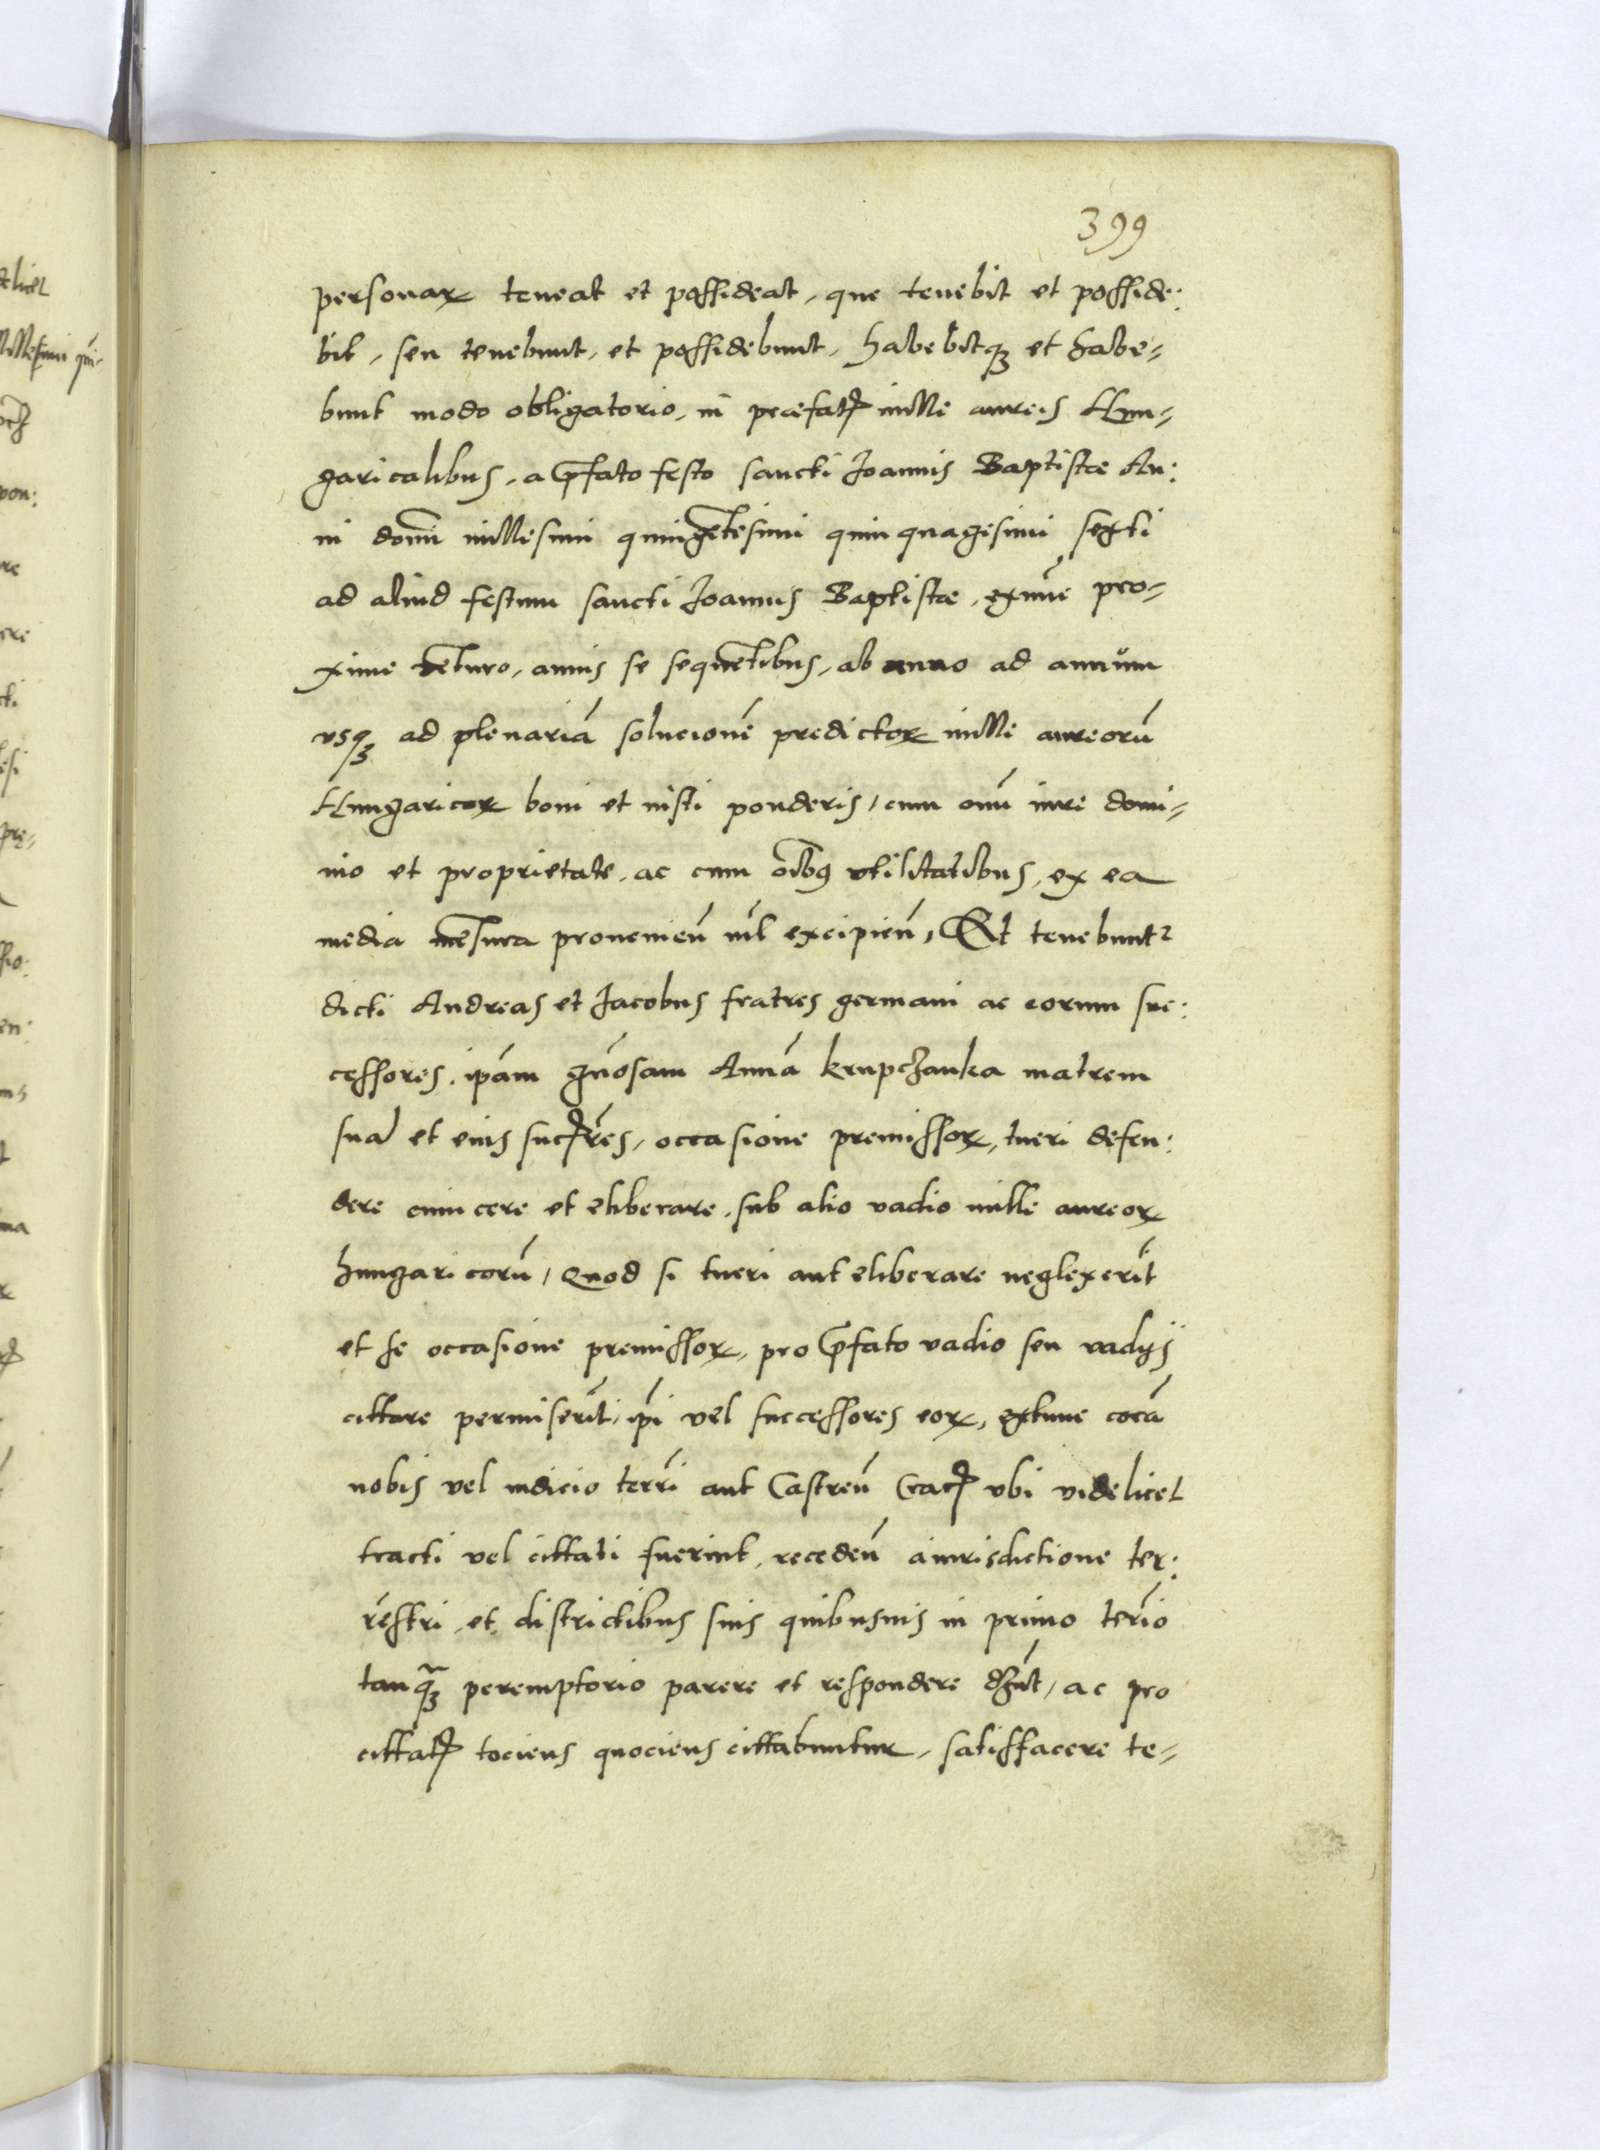 399
personarꝝ teneat et possideat, que tenebit et posside:
bit, seu tenebunt, et possidebunt, habebitqꝫ et habe-
bunt modo obligatorio, in prefatꝭ mille aureis Hun-
garicalibus, a p̄fato festo sancti Joannis Baptistæ An:
ni domī millesimi quingētesimi quinquagesimi sexti
ad aliud festum sancti Joannis Baptistæ, exnūc pro-
xime vēturo, annis se sequētibus, ab anno ad annum
usqꝫ ad plenariā solucionē predictoꝝ mille aureorū
Hungaricoꝝ boni et iusti ponderis, cum omī iure domi-
nio et proprietate, ac cum oībꝰ utilitatibus, ex ea
media mēsura provenieñ vīl excipieñ, Et tenebunt᷑
dicti Andreas et Jacobus fratres germani ac eorum suc:
cessores, ipām gn̄osam Annā Krupczanka matrem
suā et eius sucꝭres, occasione premissoꝝ, tueri defen:
dere evincere et eliberare, sub alio vadio mille aureoꝝ
hungaricorū, Quod si tueri aut eliberare neglexerīt
et se occasione premissoꝝ, pro p̄fato vadio seu vadÿs
cittare permiserīt, ip̄i vel successores eoꝝ, extunc corā
nobis vel iudicio terrī aut Castreñ Cracꝭ ubi videlicet
tracti vel cittati fuerint, recedeñ a iurisdictione ter:
rēstri et districtibus suis quibusuis in primo terīo
tanqꝫ peremptorio parere et respondere dēbūt, ac pro
cittatꝭ tociens quociens cittabuntur, satisfacere te-